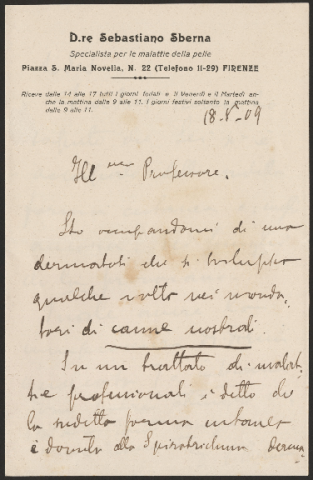 D.re Sebastiano Sberna
Specialista per le malattie della pelle
Piazza S. Maria Novella, N. 22 (Telefono 11-29) FIRENZE
Riceve dalle 14 alle 17 tutti i giorni feriali e il Venerdì e il Martedì an-
che la mattina dalle 9 alle 11. I giorni festivi soltanto la mattina
dalle 9 alle 11.
18-8-09
Ill.mo Professore.
Sto occupandomi di una
dermatosi che si sviluppa
qualche volta nei monda-
tori di canne nostrali.
In un trattato di malat-
tie professionali è detto che
la sudetta forma cutanea
è dovuta allo